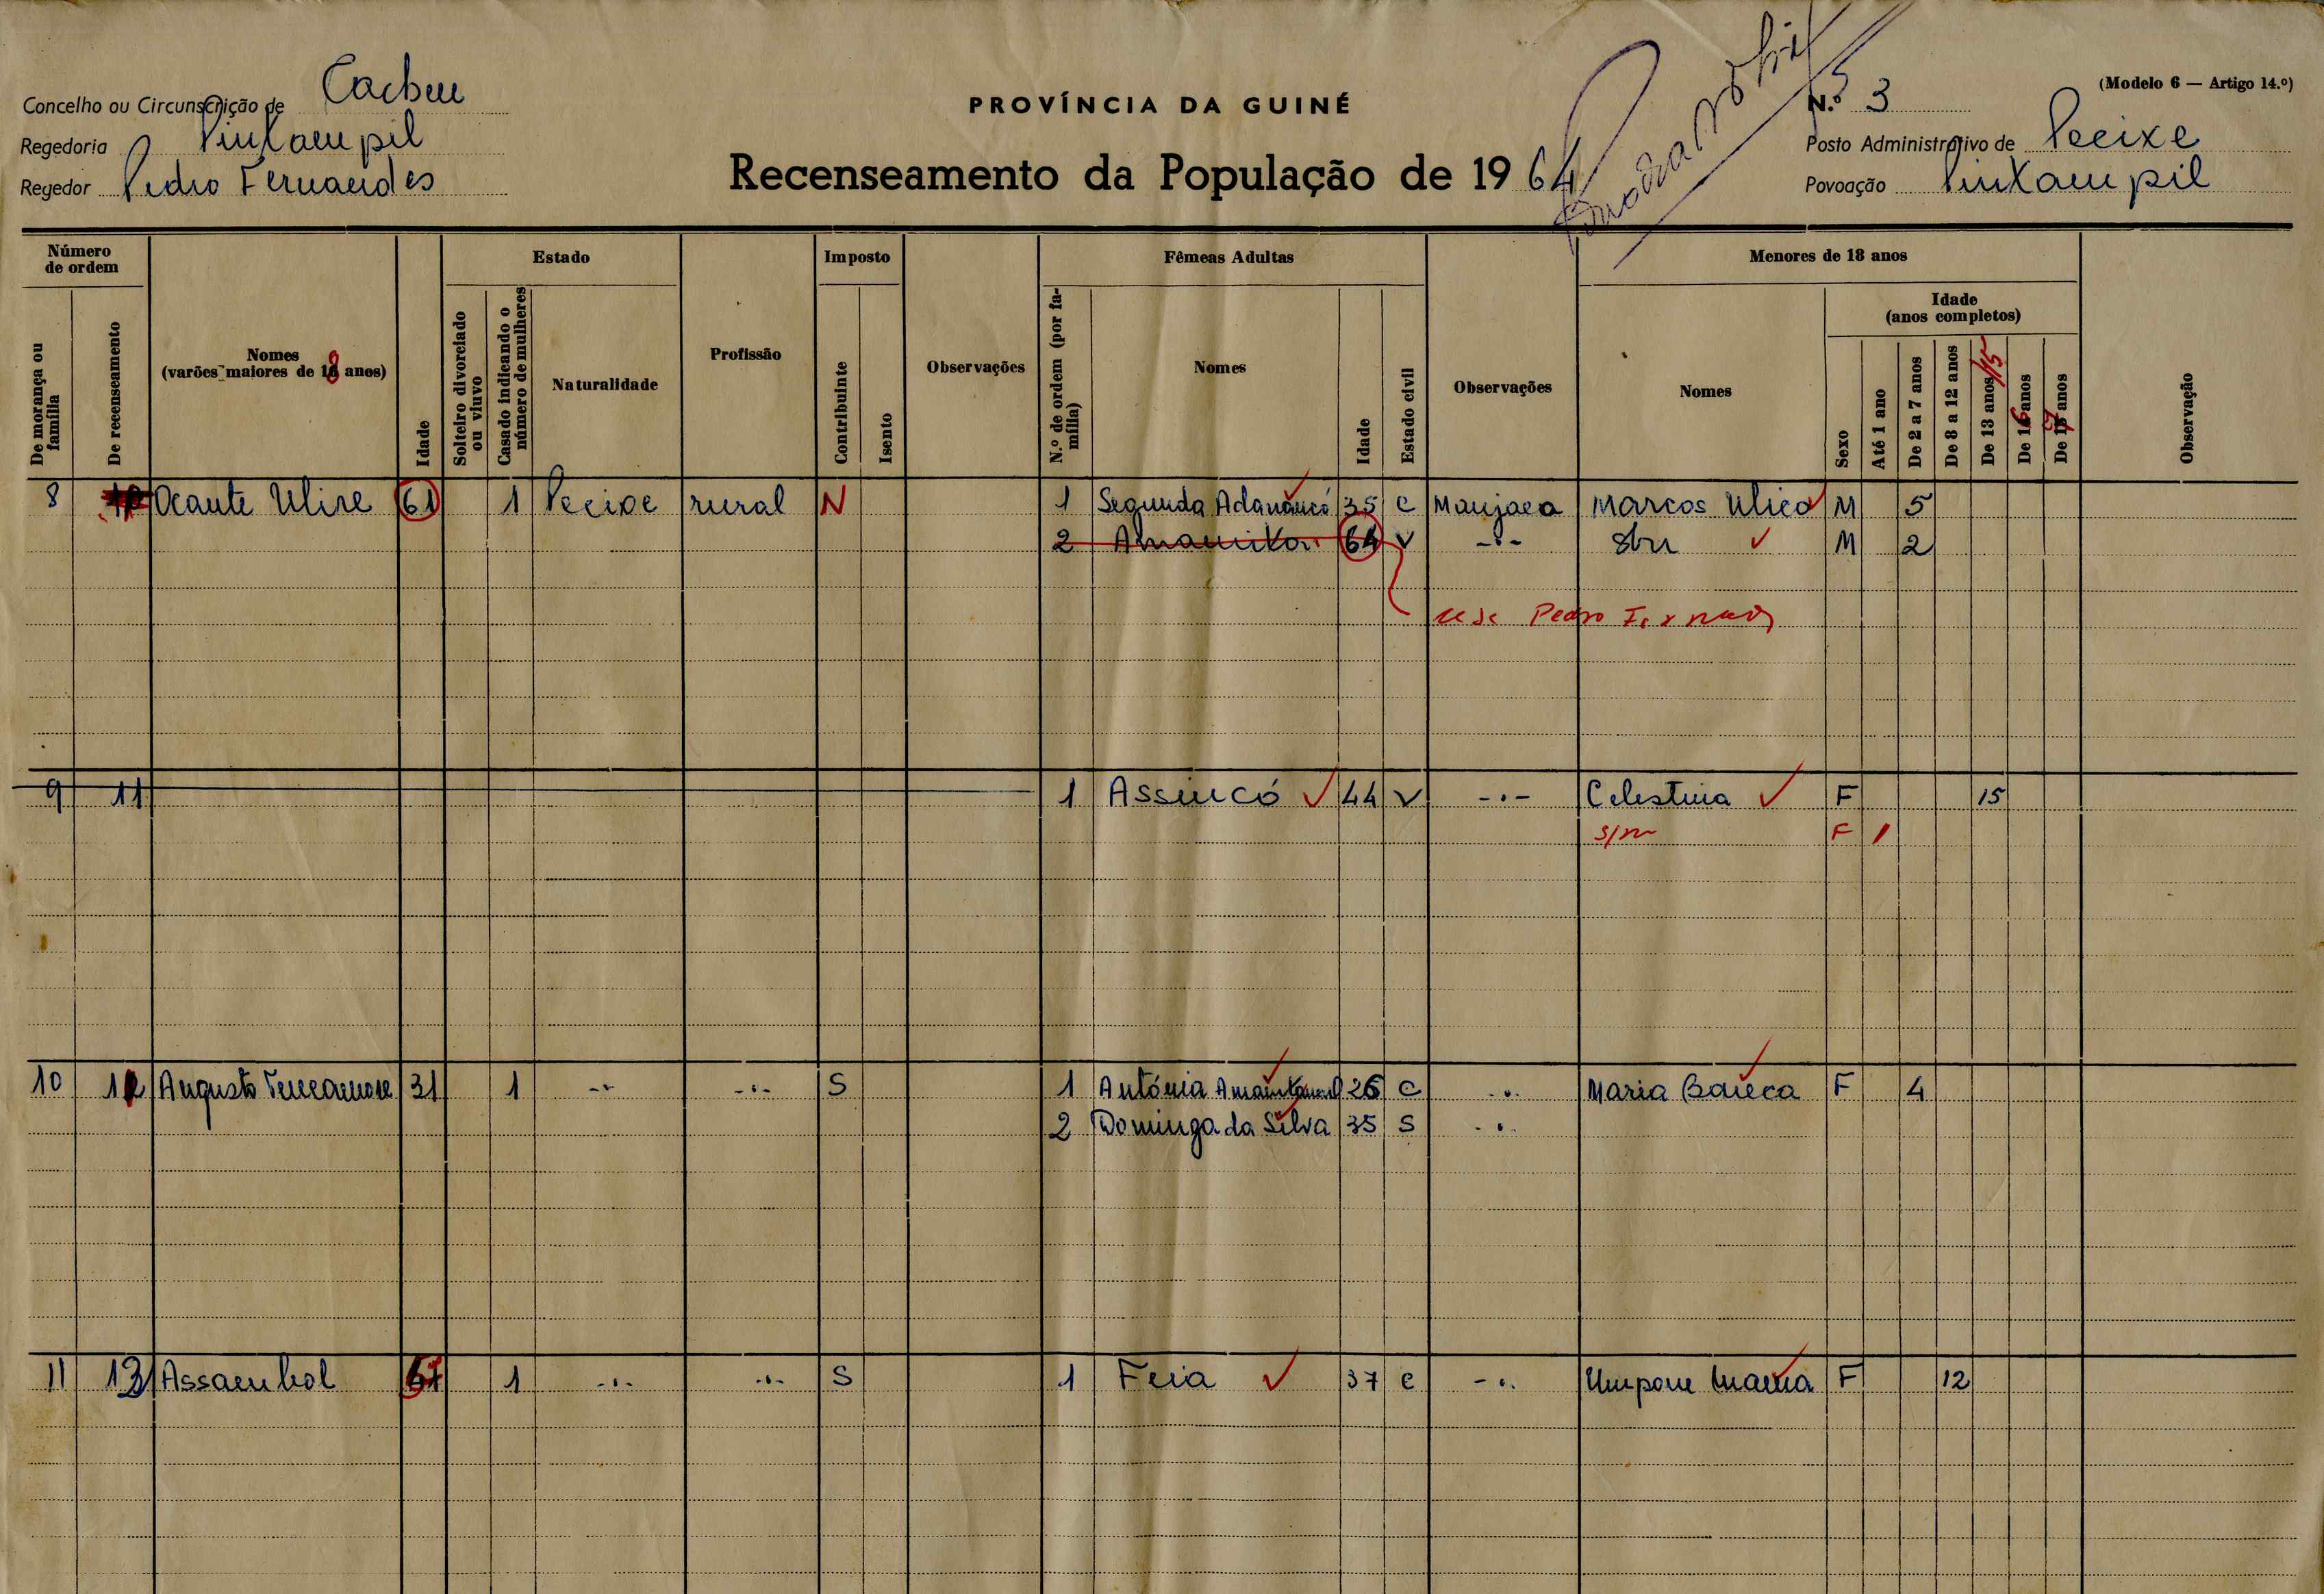 Concelho ou Circunscrição de Cacheu
Regedoria
Regedor Pedro Fernandes
PROVÍNCIA DA GUINÉ
Recenseamento da População de 1964
(Modelo 6 — Artigo 14.º)
N.º 3
Posto Administrativo de Pecixe
Povoação
Número de ordem
De morança ou família
De recenseamento
Nomes
(varões maiores de 18 anos)
Idade
Estado
Solteiro divorciado ou viuvo
Casado indicando o número de mulheres
Naturalidade
Profissão
Imposto
Contribuinte
Isento
Observações
Fêmeas Adultas
N.º de ordem (por família)
Nomes
Idade
Estado civil
Observações
Menores de 18 anos
Nomes
Idade
(anos completos)
Sexo
Até 1 ano
De 2 a 7 anos
De 8 a 12 anos
De 13 anos /15
De 16 anos
De 17 anos
Observação
8 Ocante Ulire 61 1 Pecixe rural N 1 Segunda 35 C Manjaca Marcos M 5
2 64 V -·- M 2
Pedro
9 11 1 Assincó 44 V -·- Celestina F 15
s/n F 1
10 12 Augusto 31 1 -·- -·- S 1 Antónia 26 C -·- Maria F 4
2 Dominga da Silva 35 S -·-
11 13 1 -·- -·- S 1 Feia 37 C -·- F 12